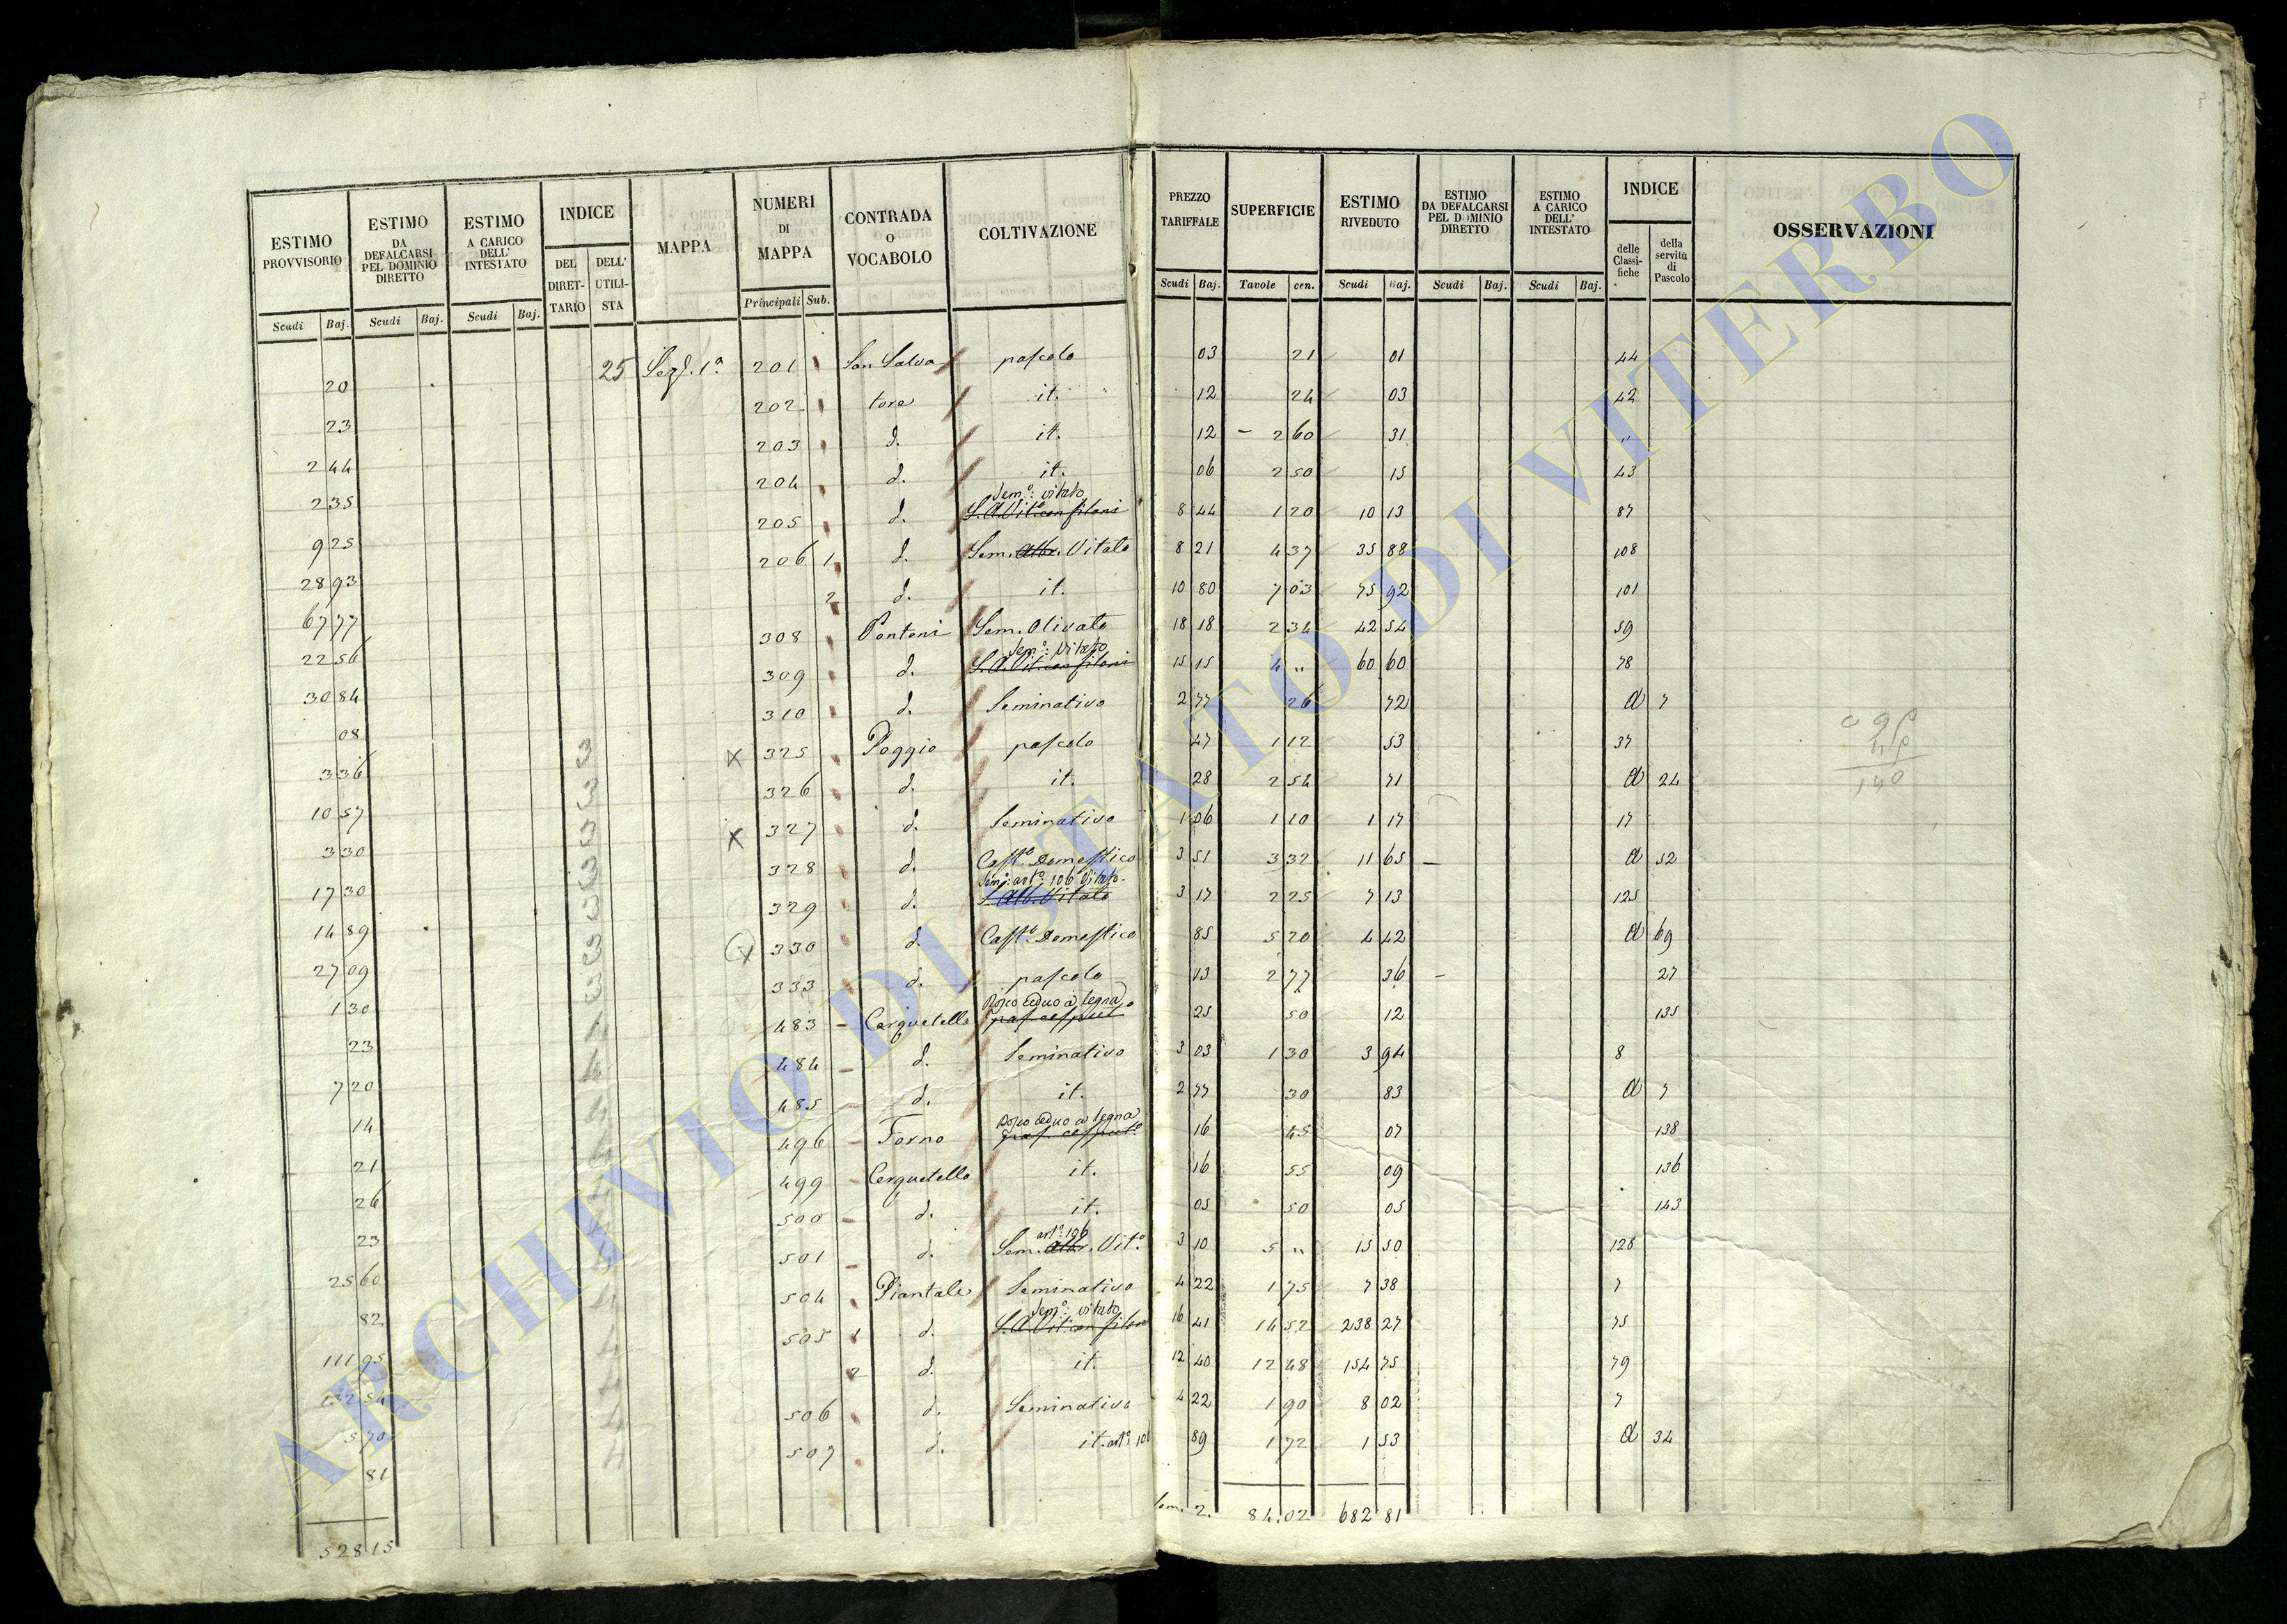 ESTIMO PROVVISORIO | ESTIMO DA DEFALCARSI PEL DOMINIO DIRETTO | ESTIMO A CARICO DELL' INTESTATO | INDICE | MAPPA | NUMERI DI MAPPA | CONTRADA O VOCABOLO | COLTIVAZIONE | PREZZO TARIFFALE | SUPERFICIE | ESTIMO RIVEDUTO | ESTIMO DA DEFALCARSI PEL DOMINIO DIRETTO | ESTIMO A CARICO DELL' INTESTATO | INDICE | OSSERVAZIONI
DEL DIRETTARIO | DELL' UTILISTA | delle Classifiche | della servitù di Pascolo
Scudi | Baj. | Scudi | Baj. | Scudi | Baj. | Principali | Sub. | Scudi | Baj. | Tavole | cen. | Scudi | Baj. | Scudi | Baj. | Scudi | Baj.
20 | 25 | Sez. 1ª | 201 | San Salva | pascolo | 03 | 21 | 01 | 44
23 | 202 | tore | it. | 12 | 24 | 03 | 42
2 44 | 203 | d. | it. | 12 | 2 60 | 31 | "
2 35 | 204 | d. | it. | 06 | 2 50 | 15 | 43
Sem.º: vitato
9 25 | 205 | d. | S. A. Vit.º con filoni | 8 44 | 1 20 | 10 13 | 87
28 93 | 206 | 1 | d. | Sem. Alb. Vitato | 8 21 | 4 37 | 35 88 | 108
67 77 | 2 | d. | it. | 10 80 | 7 03 | 75 92 | 101
22 56 | 308 | Pontoni | Sem. Olivato | 18 18 | 2 34 | 42 54 | 59
Sem.º: vitato
30 84 | 309 | d. | S. A. Vit. con filoni | 15 15 | 4 " | 60 60 | 78
08 | 310 | d. | Seminativo | 2 77 | 26 | 72 | a | 7
3 36 | 3 | X | 325 | Poggio | pascolo | 47 | 1 12 | 53 | 37
10 57 | 3 | 326 | d. | it. | 28 | 2 54 | 71 | a | 24
3 30 | 3 | X | 327 | d. | Seminativo | 1 06 | 1 10 | 1 17 | 17
17 30 | 3 | 328 | d. | Cast.º Domestico | 3 51 | 3 32 | 11 65 | a | 52
Sem.º: art.º 106 Vitato
14 89 | 3 | 329 | d. | S. Alb. Vitato | 3 17 | 2 25 | 7 13 | 125
27 09 | 3 | X | 330 | d. | Cast.º Domestico | 85 | 5 20 | 4 42 | a | 69
1 30 | 3 | 333 | d. | pascolo | 13 | 2 77 | 36 | 27
Bosco ceduo a legna
23 | 4 | 483 | Cerquetello | pas. cesput.º | 25 | 50 | 12 | 135
7 20 | 4 | 484 | d. | Seminativo | 3 03 | 1 30 | 3 94 | 8
14 | 4 | 485 | d. | it. | 2 77 | 30 | 83 | a | 7
Bosco ceduo a legna
21 | 4 | 496 | Forno | pas. cesput.º | 16 | 45 | 07 | 138
26 | 4 | 499 | Cerquetello | it. | 16 | 55 | 09 | 136
23 | 4 | 500 | d. | it. | 05 | 50 | 05 | 143
art.º 106
25 60 | 4 | 501 | d. | Sem. Alb. Vit.º | 3 10 | 5 " | 15 50 | 126
82 | 4 | 504 | Piantale | Seminativo | 4 22 | 1 75 | 7 38 | 7
Sem.º: vitato
111 95 | 4 | 505 | 1 | d. | S. A. Vit. con filoni | 16 41 | 14 52 | 238 27 | 75
132 54 | 4 | 2 | d. | it. | 12 40 | 12 48 | 154 75 | 79
5 70 | 4 | 506 | d. | Seminativo | 4 22 | 1 90 | 8 02 | 7
81 | 4 | 507 | d. | it. art.º 106 | 89 | 1 72 | 1 53 | a | 34
528 15 | 84.02 | 682 81
140
ARCHIVIO DI STATO DI VITERBO